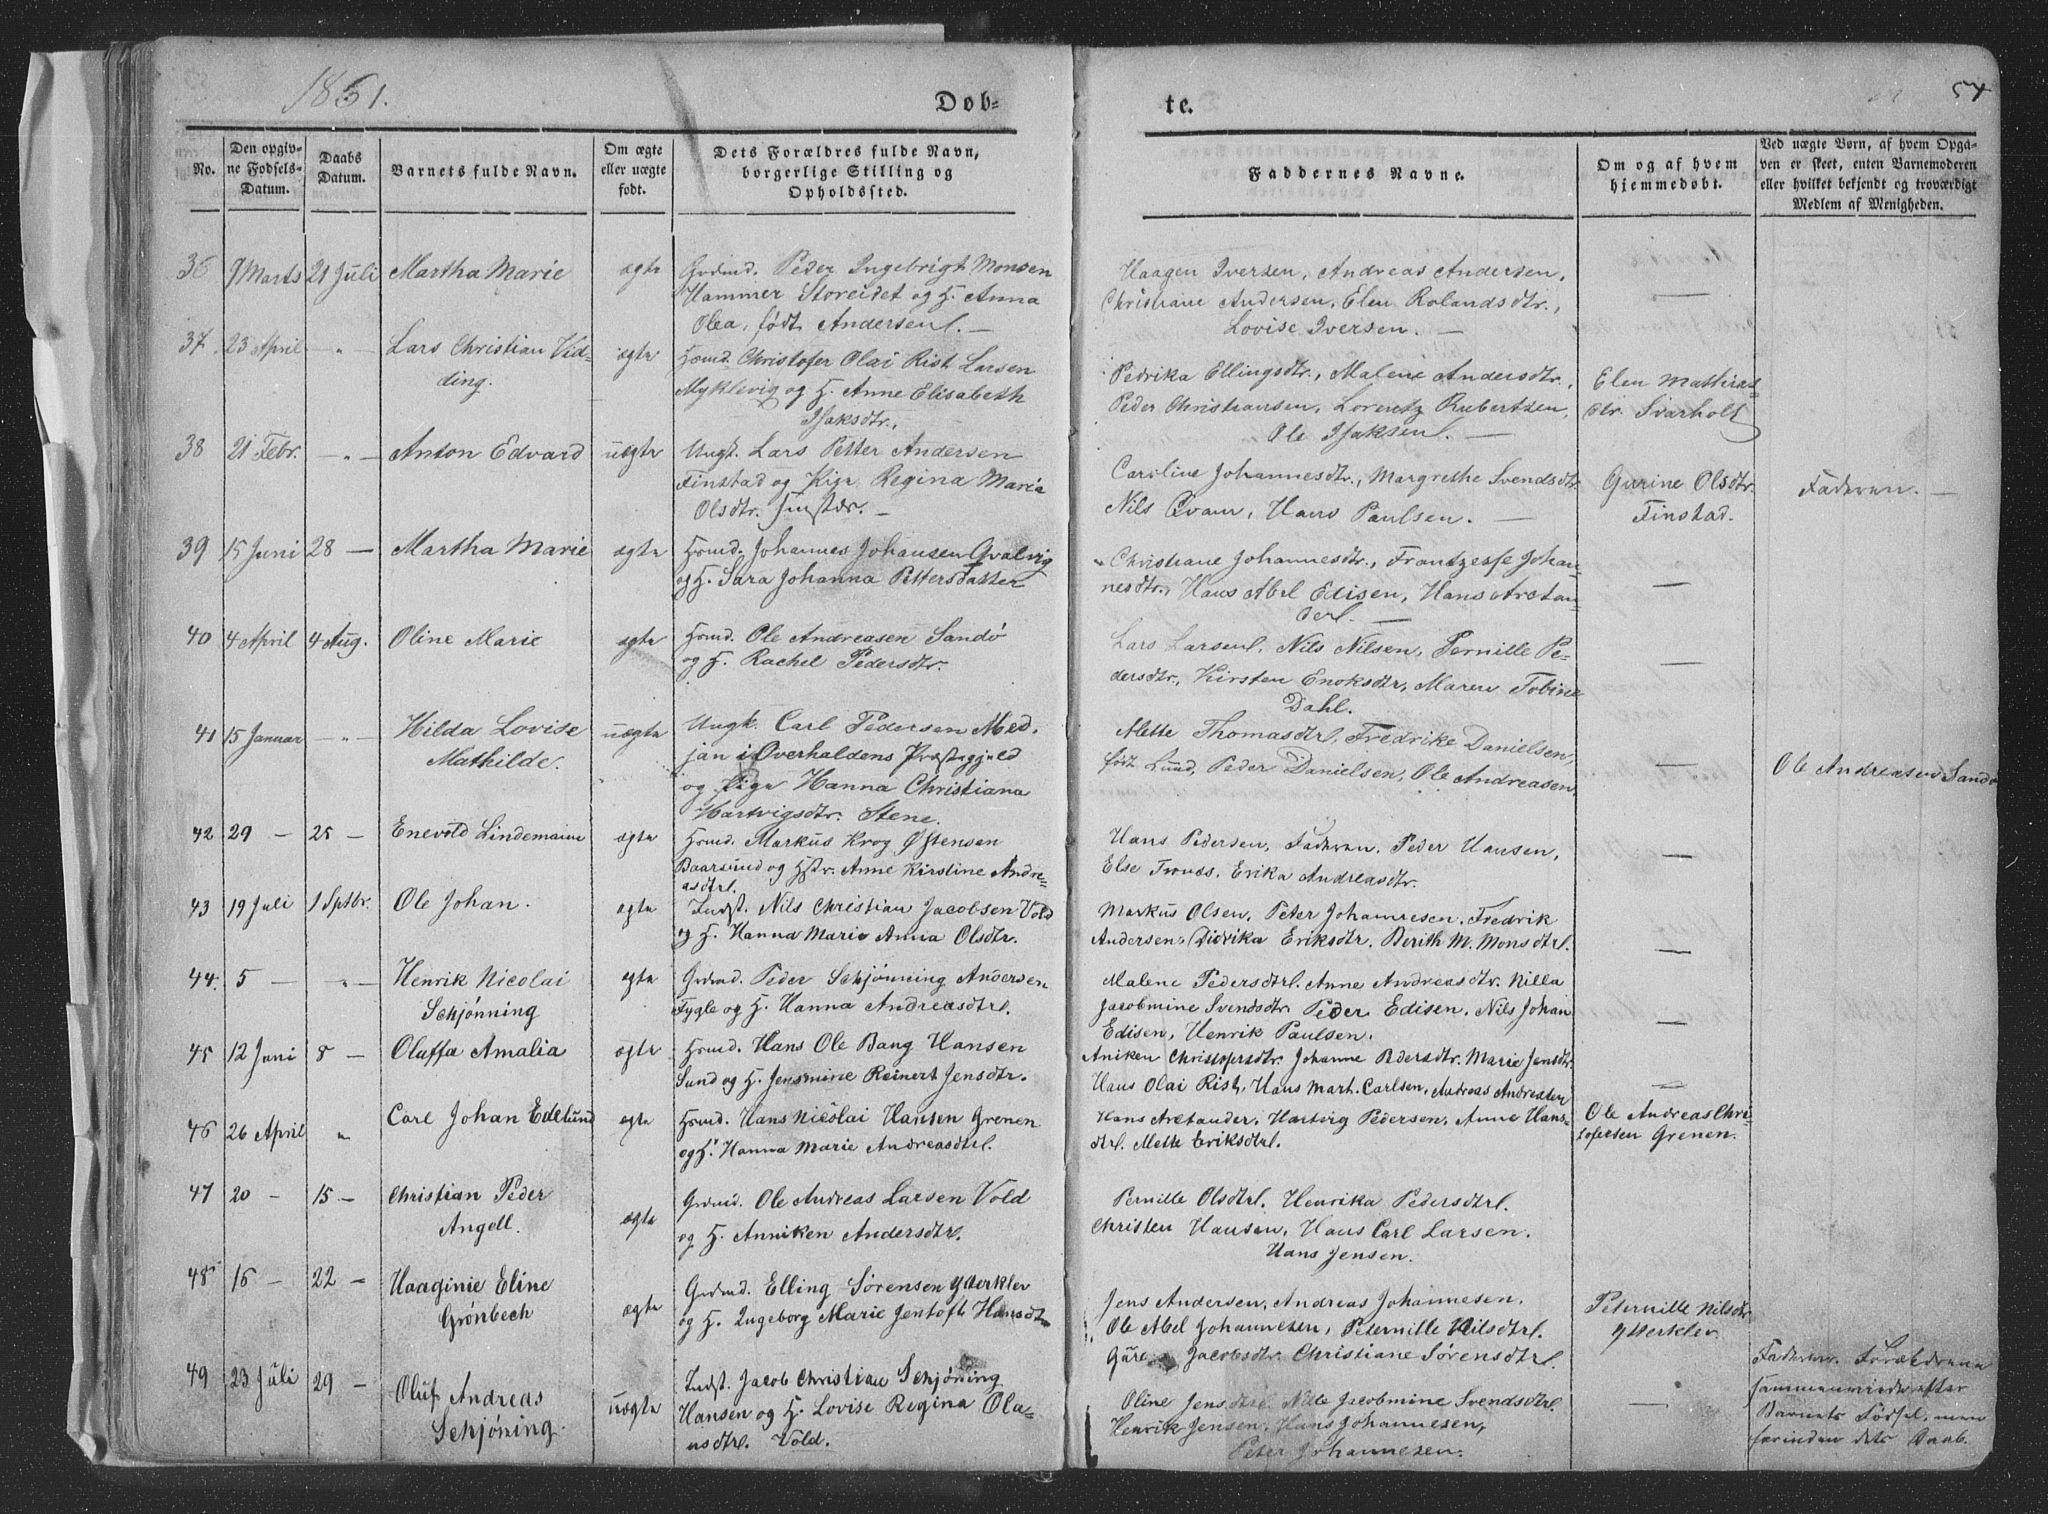 1861.
Døb-
te.
54
No.
Den opgiv-
ne Fødsels-
Datum.
Daabs
Datum.
Barnets fulde Navn.
Om ægte
eller uægte
født.
Dets Forældres fulde Navn,
borgerlige Stilling og
Opholdssted.
Faddernes Navne.
Om og af hvem
hjemmedøbt.
Ved uægte Børn, af hvem Opga-
ven er skeet, enten Barnemoderen
eller hvilket bekjendt og troværdigt
Medlem af Menigheden.
36 7 Marts 21 Juli Martha Marie ægte Grdmd. Peder Ingebrigt Monsen
Hammer Storeidet og H. Anna
Olea, født Andersen. —
Haagen Iversen, Andreas Andersen,
Christiane Andersen, Elen Rolandsdtr.,
Lovise Iversen. —
—
37. 23 April — „ — Lars Christian Vid-
ding. ægte Hsmd. Christofer Olai Rist Larsen
Myklevig og H. Anne Elisabeth
Isaksdtr.,
Pedrika Ellingsdtr., Malene Andersdtr.,
Peder Christiansen, Lorentz Rubertsen,
Ole Isaksen. —
Elen Mathias-
dtr. Svarholt
38 21 Febr. — „ — Anton Edvard uægte Ungk. Lars Petter Andersen
Finstad og Pige Regina Maria
Olsdtr. —
Caroline Johannesdtr., Margrethe Svendsdtr.
Nils Evam, Hans Paulsen. —
Gurine Olsdtr.
Finstad.
Faderen. —
39 15 Juni 28 — Martha Marie ægte Hsmd. Johannes Johansen Qvalvig
og H. Sara Johanna Pettersdatter
Christiane Johannesdtr., Frantzesse Johan-
nesdtr., Hans Abel Edisen, Hans Aretan-
der. —
—
40 4 April 4 Aug. Oline Marie ægte Hsmd. Ole Andreasen Sandö
og H. Rachel Pedersdtr.
Lars Larsen, Nils Nilsen, Pernille Pe-
dersdtr., Kirsten Enoksdtr, Maren Tobine
Dahl.
—
41 15 Januar — „ — Hilda Lovise
Mathilde. uægte Ungk. Carl Pedersen Med-
jan i Overhaldens Præstegjeld
og Pige Hanna Christiana
Hartvigsdtr. Stene.
Mette Thomasdtr, Fredrike Danielsen,
født Lund, Peder Danielsen, Ole Andreasen.
—
Ole Andreasen Sandö
42 29 — 25 — Enevold Lindemann ægte Hsmd. Markus Krog Østensen
Baarsund og Hstr. Anne Kirstine Andre-
asdtr.
Hans Pedersen, Faderen. Peder Hansen,
Else Tronds. Erika Andreasdtr.
—
43 19 Juli 1 Sptbr. Ole Johan. ægte Indst. Nils Christian Jacobsen Vold
og H. Hanna Marie Anna Olsdtr.
Markus Olsen, Peter Johannesen. Fredrik
Andersen. Didrika Eriksdtr. Berith M. Monsdtr.
—
44. 5 — — „ — Henrik Nicolai
Schjønning ægte Grdmd. Peder Schjønning Andersen
Fygle og H. Hanna Andreasdtr.
Malene Pedersdtr. Anne Andreasdtr. Nilla
Jacobmine Svendsdtr Peder Edisen. Nils Johan
Edisen, Henrik Paulsen.
—
45 12 Juni 8 — Olaffa Amalia ægte Hsmd. Hans Ole Bang Hansen
Sund og H. Jensmine Reinert Jensdtr.
Aniken Christofersdtr. Johanne Pedersdtr. Marie Jensdtr.
Hans Olai Rist, Hans Mart. Carlsen, Andreas Andresen
—
46 26 April „ Carl Johan Edelund ægte Hsmd. Hans Nicolai Hansen Grenen
og H. Hanna Marie Andreasdtr.
Hans Aretander. Hartvig Pedersen. Anne Hans-
dtr. Mette Eriksdtr.
Ole Andreas Chri-
stofersen Grenen.
47 20 — 15 — Christian Peder
Angell. ægte Grdmd. Ole Andreas Larsen Vold
og H. Anniken Andersdtr.
Pernille Olsdtr. Henrika Pedersdtr.
Christen Hansen, Hans Carl Larsen.
Hans Jensen.
48 16 — 22 — Haaginie Eline
Grønbech ægte Grdmd. Elling Sørensen Ytterklev
og H. Ingeborg Marie Jentoft Hansdtr
Jens Andersen, Andreas Johannesen.
Ole Abel Johannesen, Peternille Nilsdtr.
Gure Jacobsdtr. Christiane Sørensdtr.
Peternille Nilsdtr
Ytterklev
49 23 Juli 29 — Oluf Andreas
Schjønning uægte Indst. Jacob Christian Schjønning
Hansen og H. Lovise Regina Ola-
usdtr. Vold.
Oline Jensdtr. Nille Jacobmine Svendsdtr.
Henrik Jensen, Hans Johannesen,
Peter Johannesen.
—
Faderen. Forældrene
sammenviede efter
Barnets Fødsel, men
forinden dets Daab.